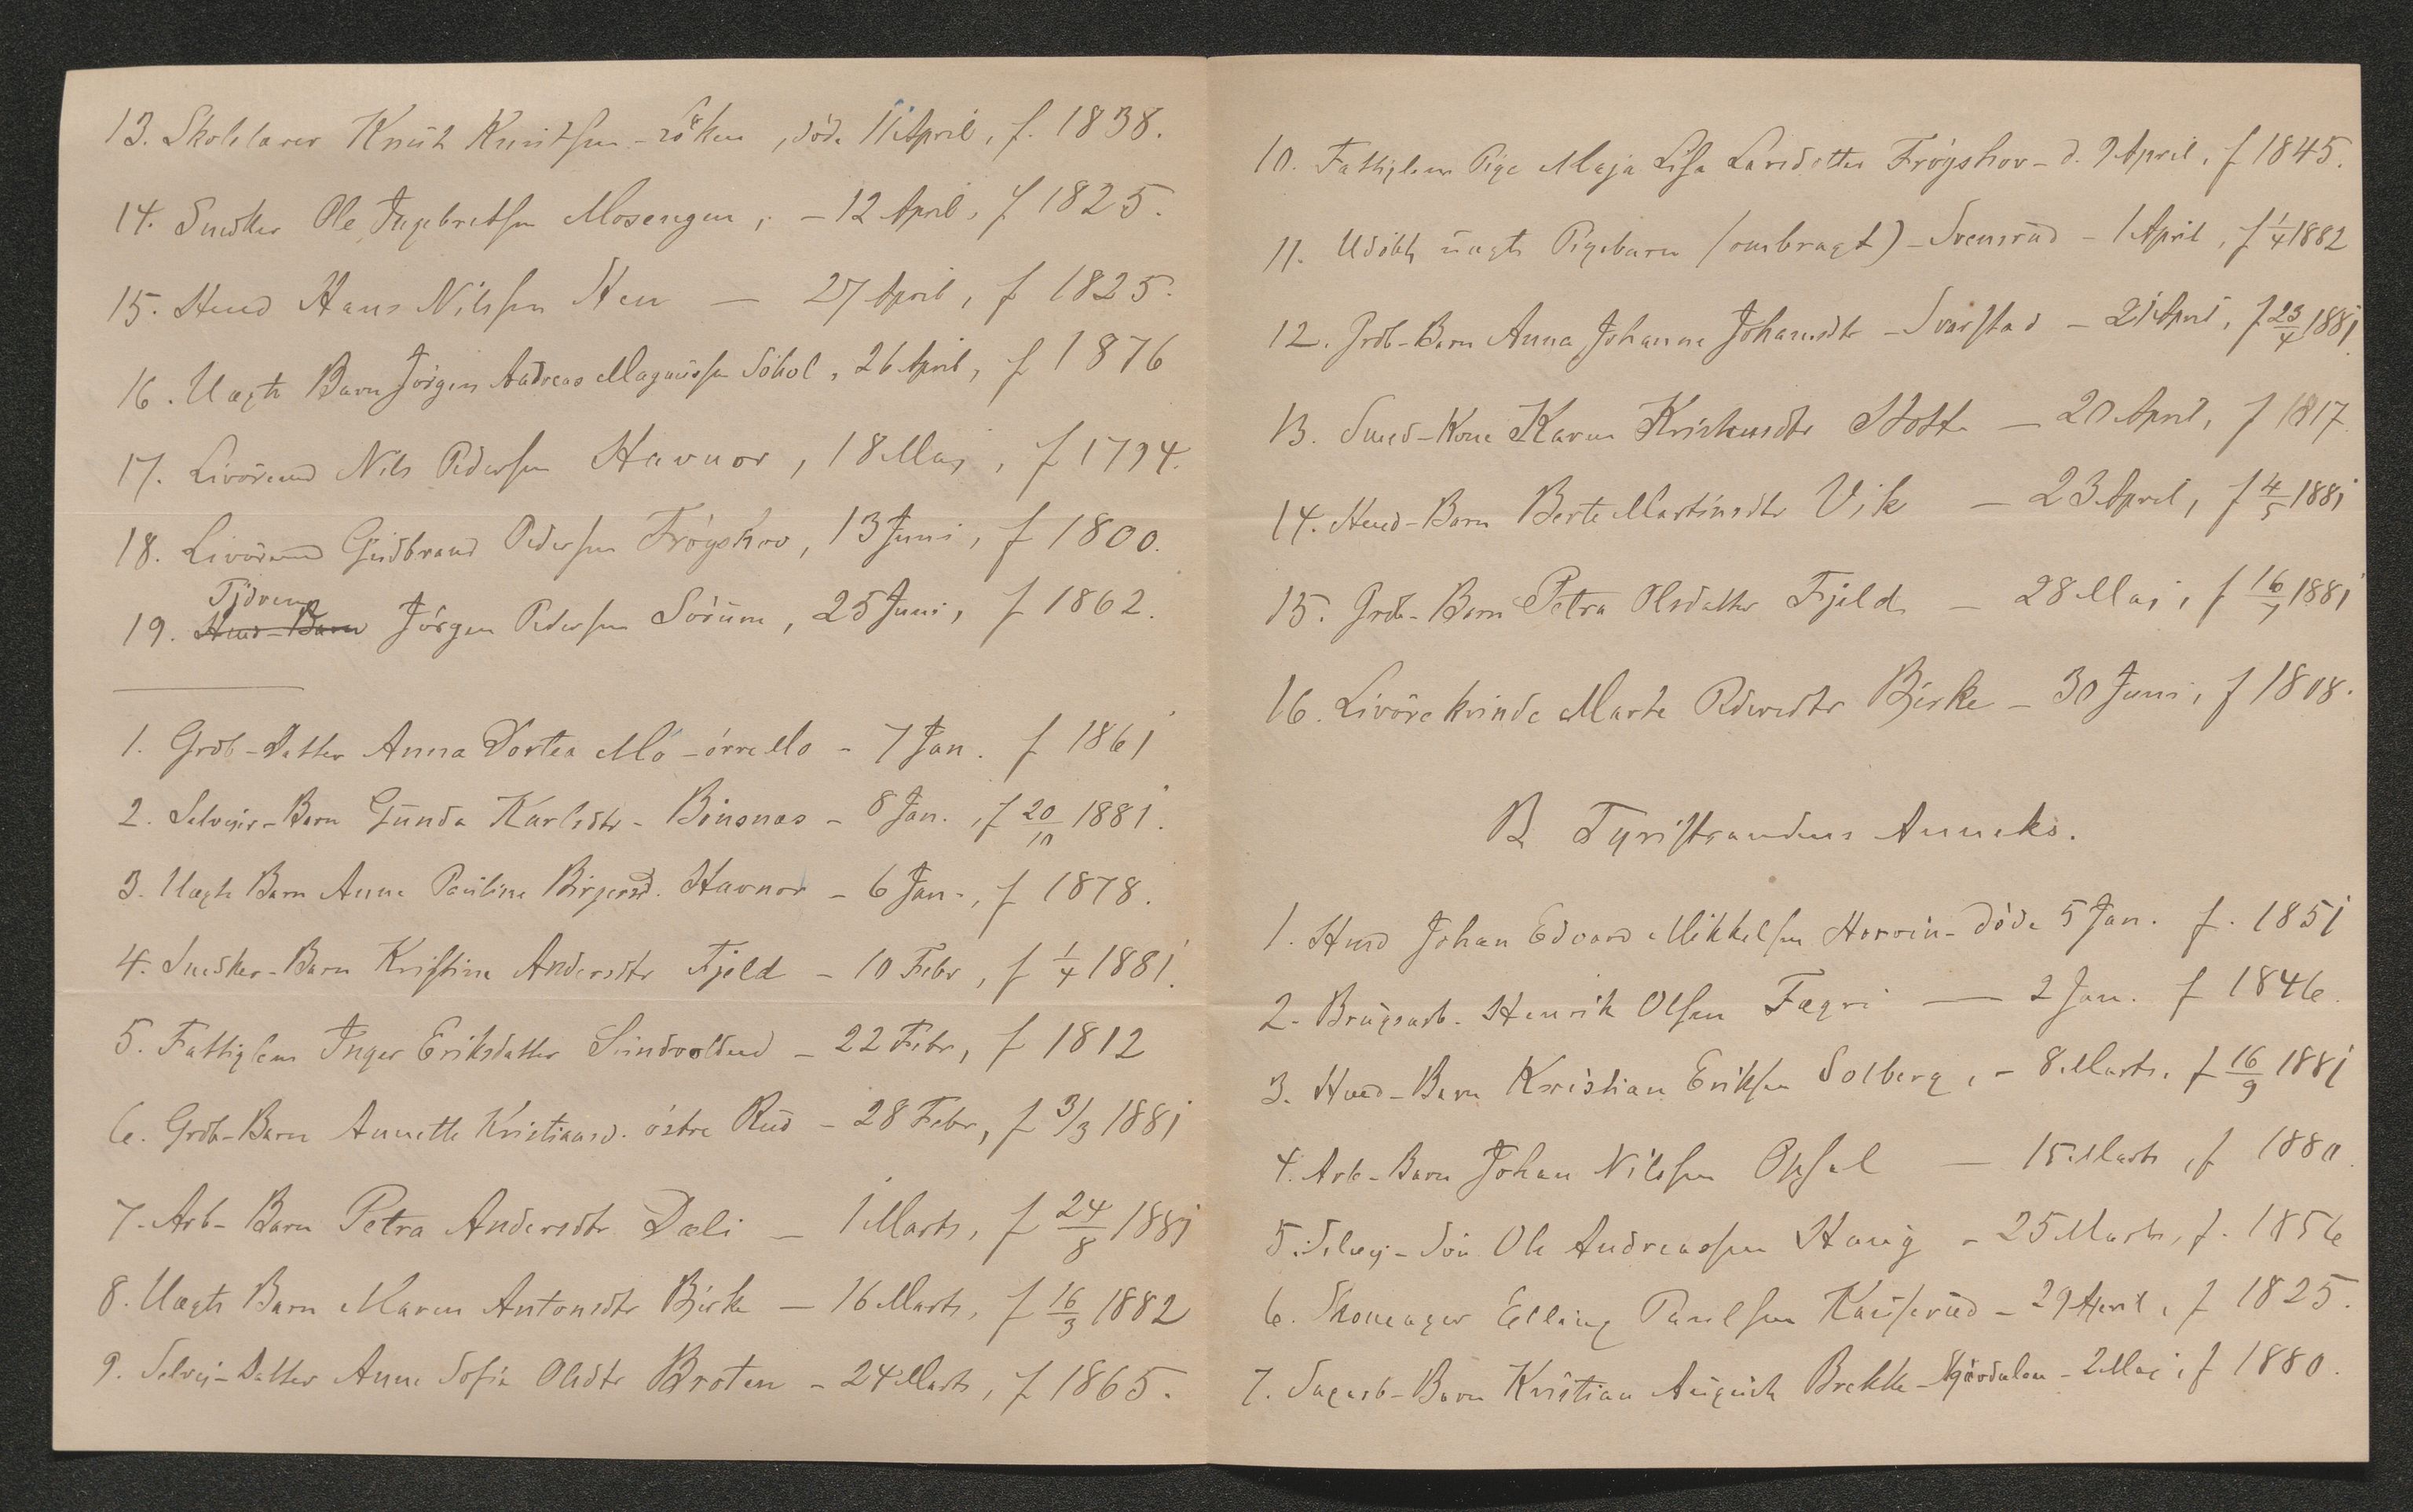 13. Skolelærer Knut Knutsen-Löken, döde 11 April, f. 1838.
14. Snedker Ole Ingebretsen Mosengen, - 12 April, f 1825.
15. Hmd Hans Nilssen Hen — 27 April, f 1825.
16. Uægte Barn Jörgen Andreas Magnussen Sökol, 26 April, f 1876
17. Livöremd Nils Pedersen Havnor, 18 Maj, f 1794.
18. Livöremd Gudbrand Pedersen Frögshov, 13 Juni, f 1800.
Tjdreng
19. Hmd-Barn Jörgen Pedersen Sörum, 25 Juni, f 1862.
1. Grdb-Datter Anna Dortea Mo-örre Mo - 7 Jan. f 1861
2. Selveier-Barn Gunda Karlsdtr - Bönsnæs - 8 Jan., f 20/10 1881.
3. Uægte Barn Anne Pauline Birgersd. Havnor - 6 Jan., f 1878.
4. Snedker-Barn Kristine Andersdtr Fjeld - 10 Febr, f 1/4 1881.
5. Fattiglem Inger Eriksdatter Sundvolden - 22 Febr, f 1812
6. Grdb-Barn Annette Kristiansd. östre Rud - 28 Febr, f 3/3 1881
7. Arb-Barn Petra Andersdtr Dæli — 1 Marts, f 24/8 1881
8. Uægte Barn Maren Antonsdtr Birke — 16 Marts, f 16/3 1882
9. Selvej-Datter Anne Sofie Olsdtr Broten - 24 Marts, f 1865.
10. Fattiglem Pige Maja Lisa Larsdotter Frögshov - d. 9 April, f 1845.
11. Udöbt uægte Pigebarn (ombragt) - Svensrud - 1 April, f 1/4 1882
12. Grdb-Barn Anna Johanne Johannsdtr - Svarstad - 21 April, f 23/4 1881.
13. Smed-Kone Karen Kristensdtr Stött — 20 April, f 1817.
14. Hmd-Barn Berte Martinsdtr Vik — 23 April, f 4/5 1881
15. Grdb-Barn Petra Olsdatter Fjeld — 28 Maj, f 16/7 1881
16. Livöre kvinde Marte Pedersdtr Birke - 30 Juni, f 1808.
B Tyristrandens Anneks.
1. Hmd Johan Edvard Mikkelsen Hervin - döde 5 Jan. f. 1851
2. Brugsarb. Henrik Olsen Fægri — 2 Jan. f 1846.
3. Hmd-Barn Kristian Eriksen Solberg, - 8 Marts, f 16/9 1881
4. Arb-Barn Johan Nilssen Opsal — 15 Marts, f 1880.
5. Selvej-Sön Ole Andreassen Haug - 25 Marts, f. 1856
6. Skomager Elling Paulsen Kauserud - 29 April, f 1825.
7. Sagarb-Barn Kristian August Brekke - Skjærdalen - 2 Maj, f 1880.